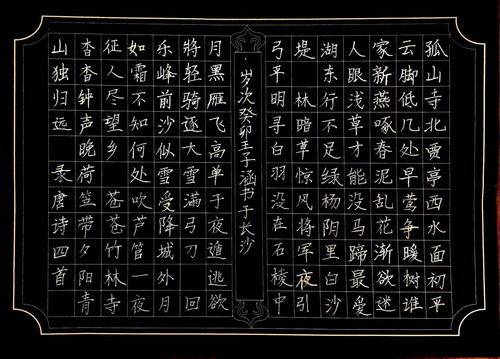 孤山寺北贾亭西水面初平
云脚低几处早莺争暖树谁
家新燕啄春泥乱花渐欲迷
人眼浅草才能没马蹄最爱
湖东行不足绿杨阴里白沙
堤 林暗草惊风将军夜引
弓平明寻白羽没在石棱中
·岁次癸卯王子涵书于长沙
月黑雁飞高单于夜遁逃欲
將轻骑逐大雪满弓刀 回
乐峰前沙似雪受降城外月
如霜不知何处吹芦管一夜
征人尽望乡 苍苍竹林寺
杳杳钟声晚荷笠带夕阳青
山独归远 录唐诗四首